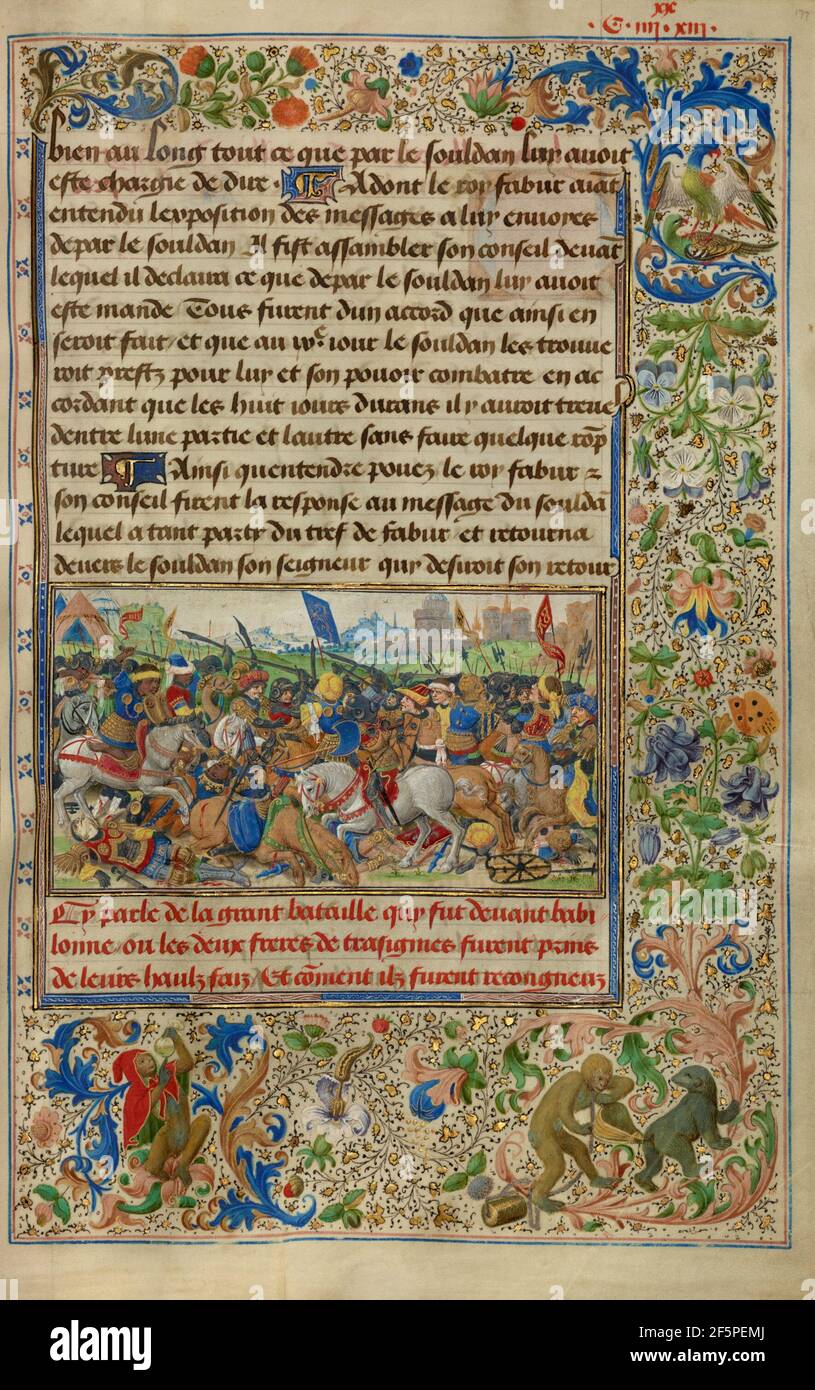 xx
· C · iiij · xiij ·
177
bien au long tout ce que par le souldan luy auoit
este chargie de dire · Adont le roy fabur aiāt
entendu lexposition des messages a luy enuoies
depar le souldan Il fist assambler son conseil deuāt
lequel il declaira ce que depar le souldan luy auoit
este mande / Tous furent dun accord que ainsi en
seroit fait / et que au iour le souldan les trouue
roit prestz pour luy et son pouoir combatre en ac
cordant que les huit iours durans il y auroit treue
dentre lune partie et lautre sans faire quelque rōp
ture Ainsi quentendre pouez le roy fabur z
son conseil firent la response au message du souldā
lequel a tant party du tref de fabur et retourna
deuers le souldan son seigneur quy desiroit son retour
Cy parle de la grant bataille quy fut deuant babi
lonne / ou les deux freres de trasignies furent prins
de leurs haulz faiz / Et cōment ilz furent recongneuz
alamy
alamy
a
a
alamy
Image ID: 2F5PEMJ
www.alamy.com